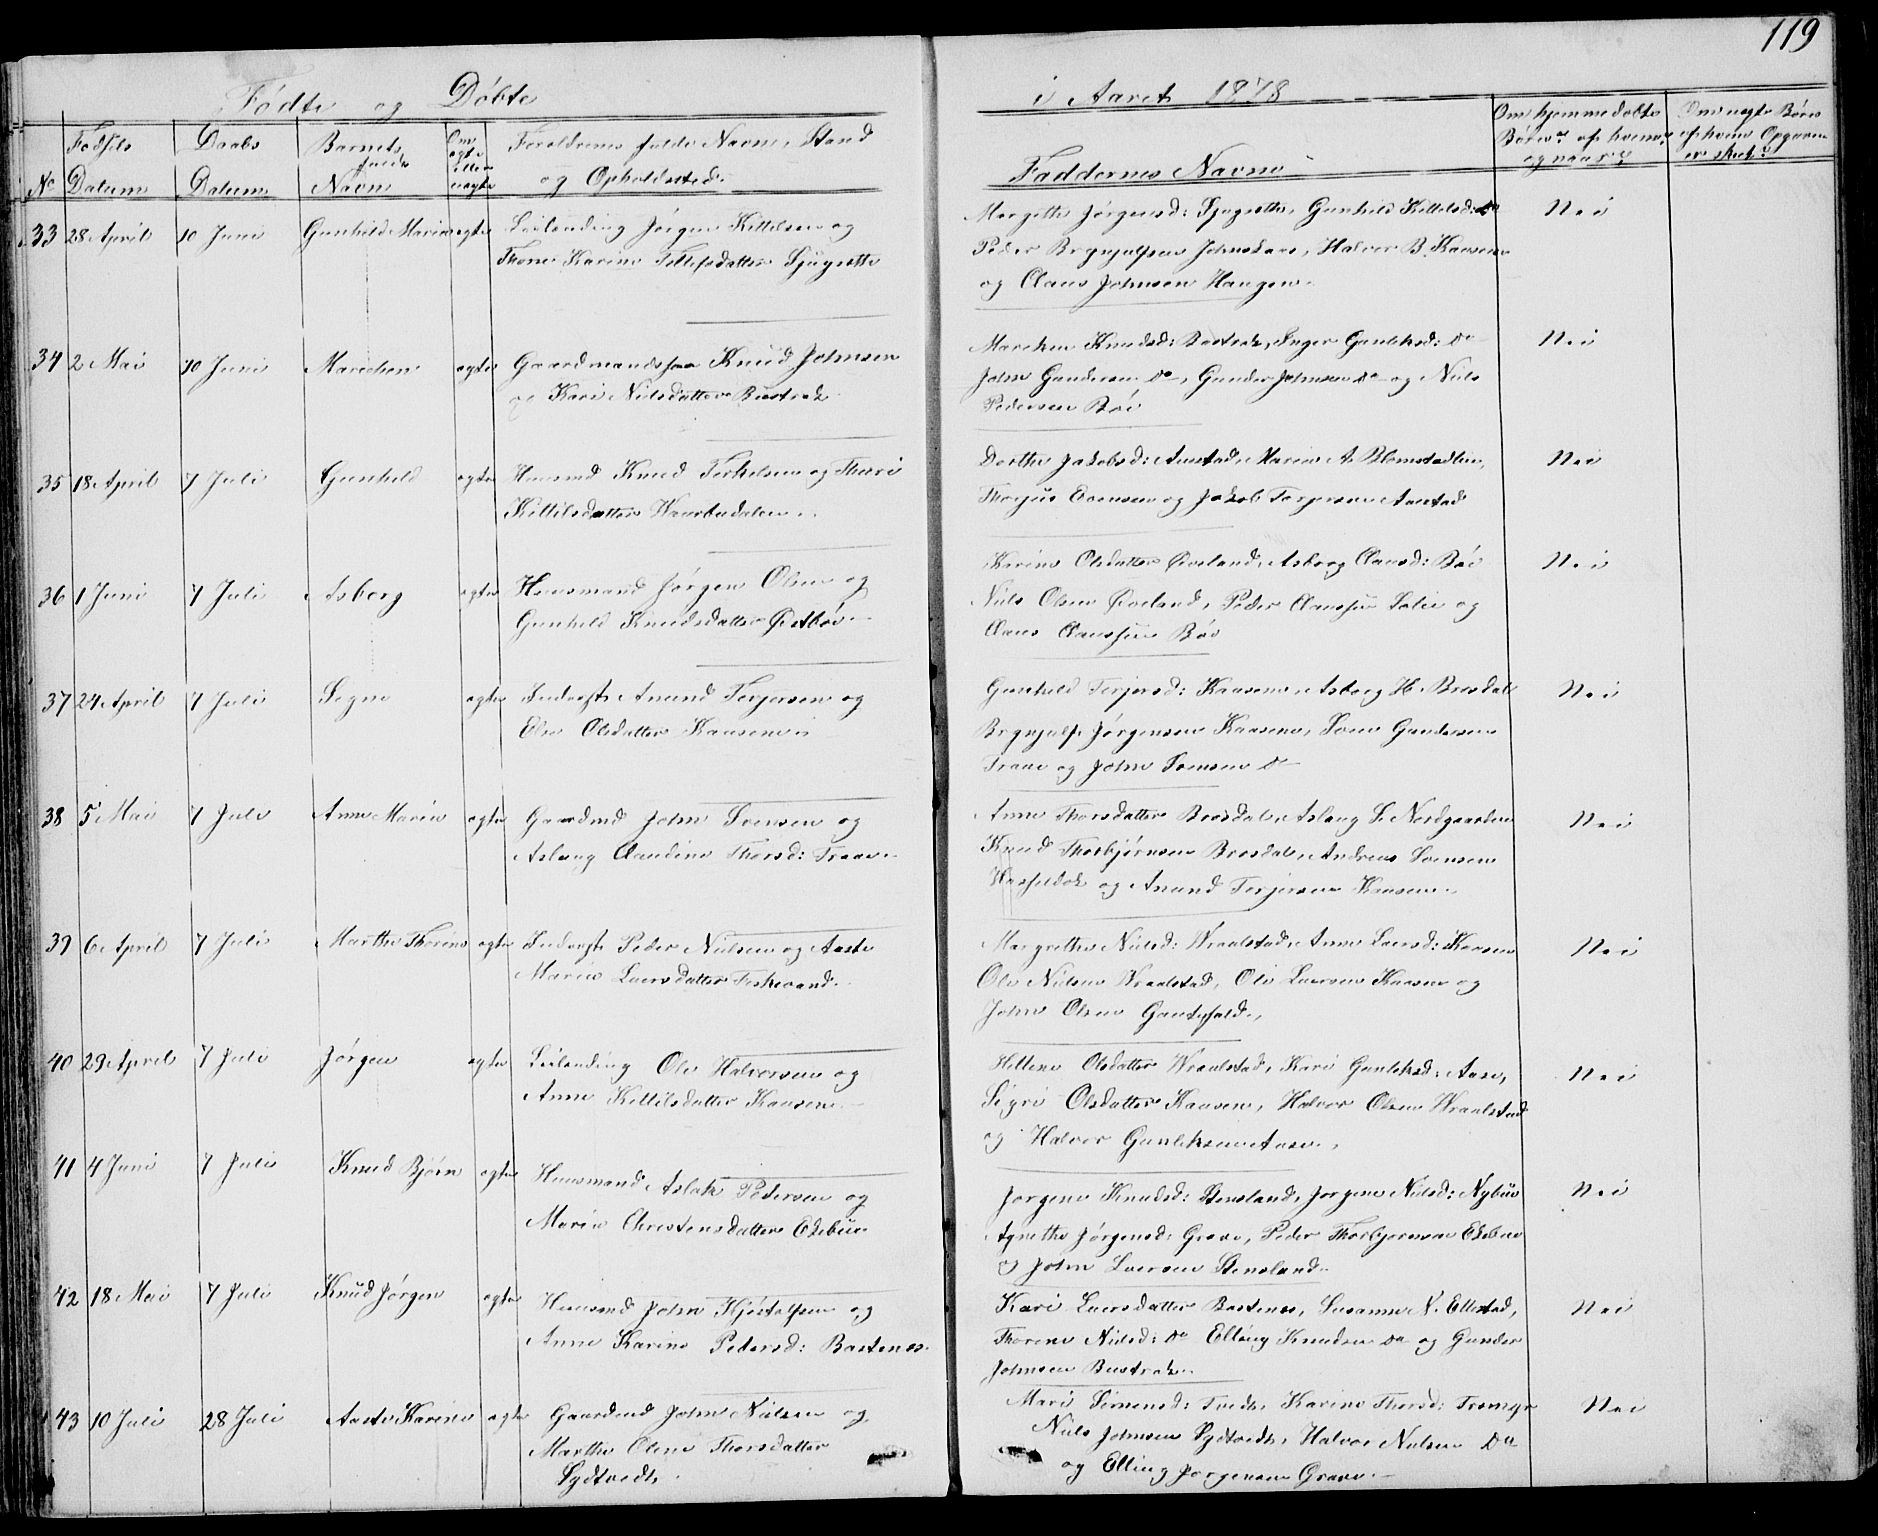 119
Fødte og Døbte
i Aaret 1878
No
Fødsels Datum
Daabs Datum
Barnets fulde Navn
Om ægte eller uægte
Forældrenes fulde Navne, Stand
og Opholdsted
Faddernes Navne
Om hjemmedøbte
Børn af hvem
og naar
Om uægte Børn
af hvem Opgaven
er skeet
33 28 April 10 Juni Gunhild Maria ægte Leilending Jørgen Kittelsen og
Thone Karine Tellefsdatter
Margethe Jørgensd: Gunhild Kittelsd: Do
Peder Brynjulfsen Halvor B. Kaasene
og Claus Johnsen Haugen
Nei
34 2 Mai 10 Juni Marichen ægte Gaardmandssøn Knud Johnsen
og Kari Nielsdatter Bustrak
Marichen Knudsd: Bustrak, Inger Gunleksd: Do
John Gundersen Do, Gunder Johnsen Do og Niels
Pedersen Bøe
Nei
35 18 April 7 Juli Gunhild ægte Huusmd Knud Terkelsen og Thuri
Kittilsdatter
Dorthe Jakobsd: Aanstad, Maria A.
Thorjus Evensen og Jakob Torjersen Aanstad
Nei
36 1 Juni 7 Juli Asborg ægte Huusmand Jørgen Olsen og
Gunhild Knudsdatter Østbøe
Karine Olsdatter Øveland, Asborg Clausd: Bøe
Niels Olsen Øveland, Peder Claussen Solie og
Claus Claussen Bøe
Nei
37 24 April 7 Juli Signe ægte Inderst Anund Terjersen og
Else Olsdatter Kaasene
Gunhild Terjersd: Kaasene, Asborg H. Brosdal
Brynjulf Jørgensen Kaasene, Sven Gundersen
Traae og John Svensen Do
Nei
38 5 Mai 7 Juli Anne Maria ægte Gaardmd John Svensen og
Aslaug Claudine Thorsd: Traae
Anne Thorsdatter Brosdal, Aslaug S. Nordgaarden
Knud Thorbjørnsen Brosdal, Andreas Svensen
og Anund Terjersen Kaasene
Nei
39 6 April 7 Juli Marthe Thorine ægte Inderst Peder Nielsen og Aaste
Maria Laersdatter Fiskevand
Margrethe Nielsd: Wraalstad, Anne Laersd: Kaasene
Ole Nielsen Wraalstad, Ole Laersen Kaasene og
John Olsen
Nei
40 29 April 7 Juli Jørgen ægte Leilending Ole Halvorsen og
Anne Kittilsdatter Kaasene
Hellene Olsdatter Wraalstad, Kari Gunleksd: Aase,
Sigri Olsdatter Kaasene, Halvor Olsen Wraalstad
og Halvor Gunleksen Aase
Nei
41 4 Juni 7 Juli Knud Bjørn ægte Huusmand Aslak Pedersen og
Maria Christensdatter Ekebue
Jørgene Knudsd: Stensland, Jørgene Nielsd: Nybue
Agnethe Jørgensd: Grave, Peder Thorbjørnsen Ekebue
og John Laersen Stensland
Nei
42 18 Mai 7 Juli Knud Jørgen ægte Huusmd John Kjøstolfsen og
Anne Karine Pedersd: Bastenes
Kari Laersdatter Bastenes, Susanne N. Ellestad,
Thorene Nielsd: Do Elling Knudsen Do og Gunder
Johnsen Bustrak
Nei
43 10 Juli 28 Juli Aaste Karine ægte Gaardmd John Nielsen og
Marthe Olene Thorsdatter
Sydtvedt
Mari Simensd: Tvedt, Karine Thorsd:
Niels Johnsen Sydtvedt, Halvor Nielsen Do
og Elling Jørgensen Grave
Nei